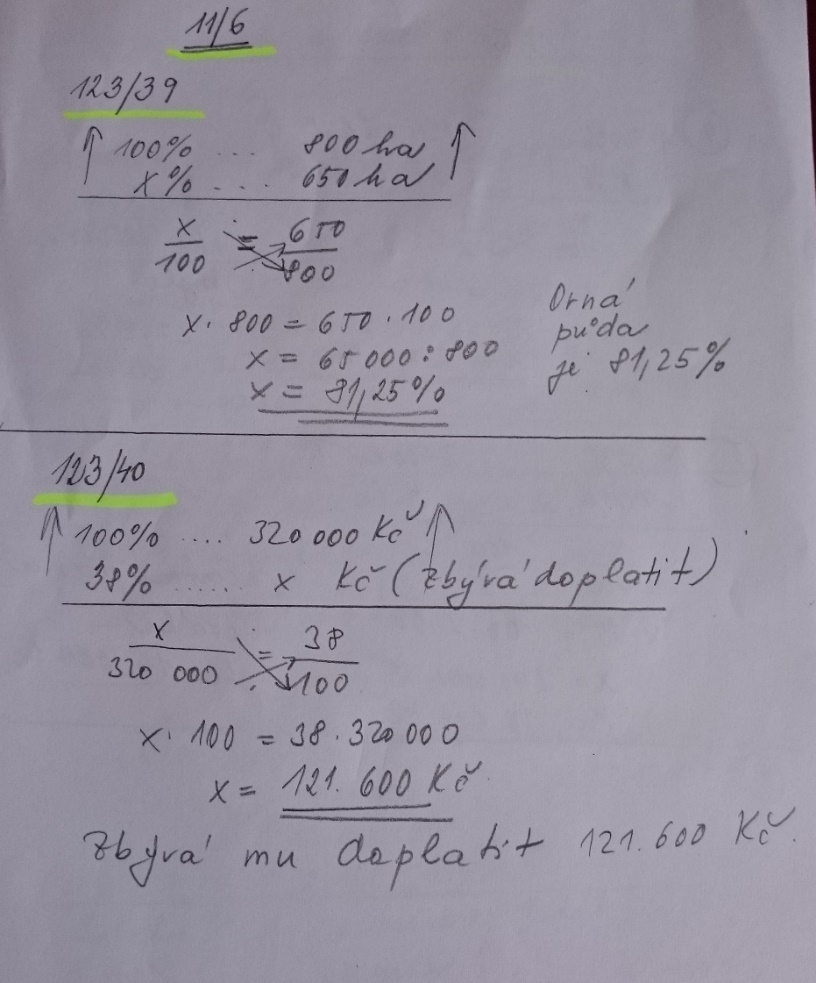 11/6
123/39
100% ... 800 ha
x% ... 650 ha
x/100 = 650/800
x · 800 = 650 · 100
x = 65 000 : 800
x = 81,25%
Orná
půda
je 81,25%
123/40
100% .... 320 000 Kč
38% ...... x Kč (zbývá doplatit)
x/320 000 = 38/100
x · 100 = 38 · 320 000
x = 121.600 Kč
Zbývá mu doplatit 121.600 Kč.